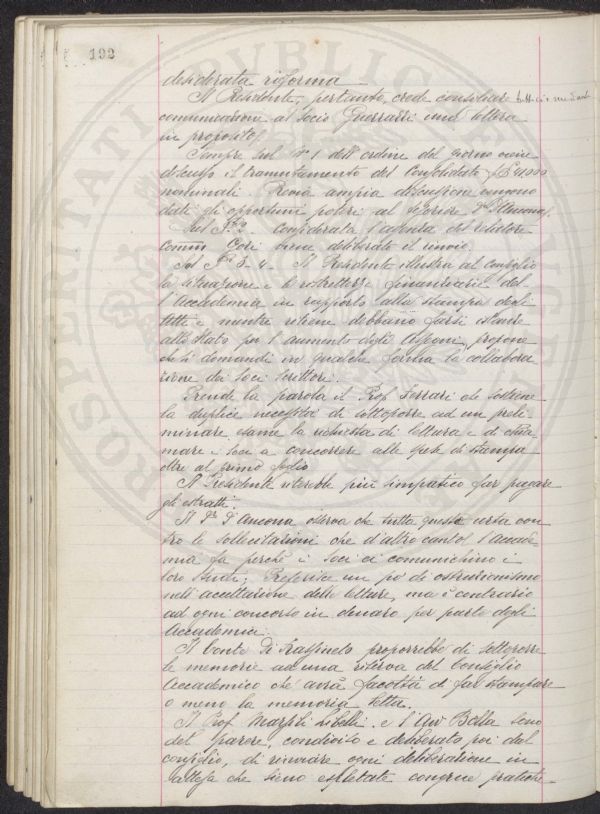 192
desiderata riforma
Il Presidente, pertanto, crede consiliare
comunicazione al socio Guerrazzi una lettera
in proposito.
Sempre sul N° 1 dell'ordine del giorno viene
discusso il tramutamento del Consolidato £ 41000
nominali. Previa ampia discussione vengono
dati gli opportuni poteri al Signore D'Ancona.
Sul N° 2. Considerata l'assenza del relatore
Comm. Gori viene deliberato il rinvio.
Sul N° 3-4. Il Presidente illustra al Consiglio
la situazione e le ristrettezze finanziarie del-
l'Accademia in rapporto alla stampa degli
Atti e mentre ritiene debbano farsi istanze
allo Stato per l'aumento degli assegni, propone
che si domandi in qualche forma la collabora
zione dei Soci Scrittori.
Prende la parola il Prof. Ferrari che sostiene
la duplice necessità di sottoporre ad un preli
minare esame la richiesta di lettura e di chia-
mare i Soci a concorrere alle spese di stampa
oltre al primo foglio
Il Presidente riterrebbe più simpatico far pagare
gli estratti.
Il Dr D'Ancona osserva che tutto questo urta con
tro le sollecitazioni che d'altro canto l'accade
mia fa perché i Soci ci comunichino i
loro Studi; Preferisce un po' di ostruzionismo
nell'accettazione delle letture, ma è contrario
ad ogni concorso in denaro per parte degli
Accademici.
Il Conte Di Frassineto proporrebbe di sottoporre
le memorie ad una riserva del Consiglio
Accademico che avrà facoltà di far stampare
o meno la memoria letta.
Il Prof. Marzili Libelli e l'Avv Balla sono
del parere, condiviso e deliberato poi dal
Consiglio, di rinviare ogni deliberazione in
attesa che sieno espletate congrue pratiche